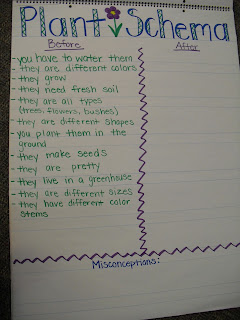 Plant Schema
Before
After
- you have to water them
- they are different colors
- they grow
- they need fresh soil
- they are all types
(trees, flowers, bushes)
- they are different shapes
- you plant them in the
ground
- they make seeds
- they are pretty
- they live in a greenhouse
- they are different sizes
- they have different color
stems
Misconceptions: